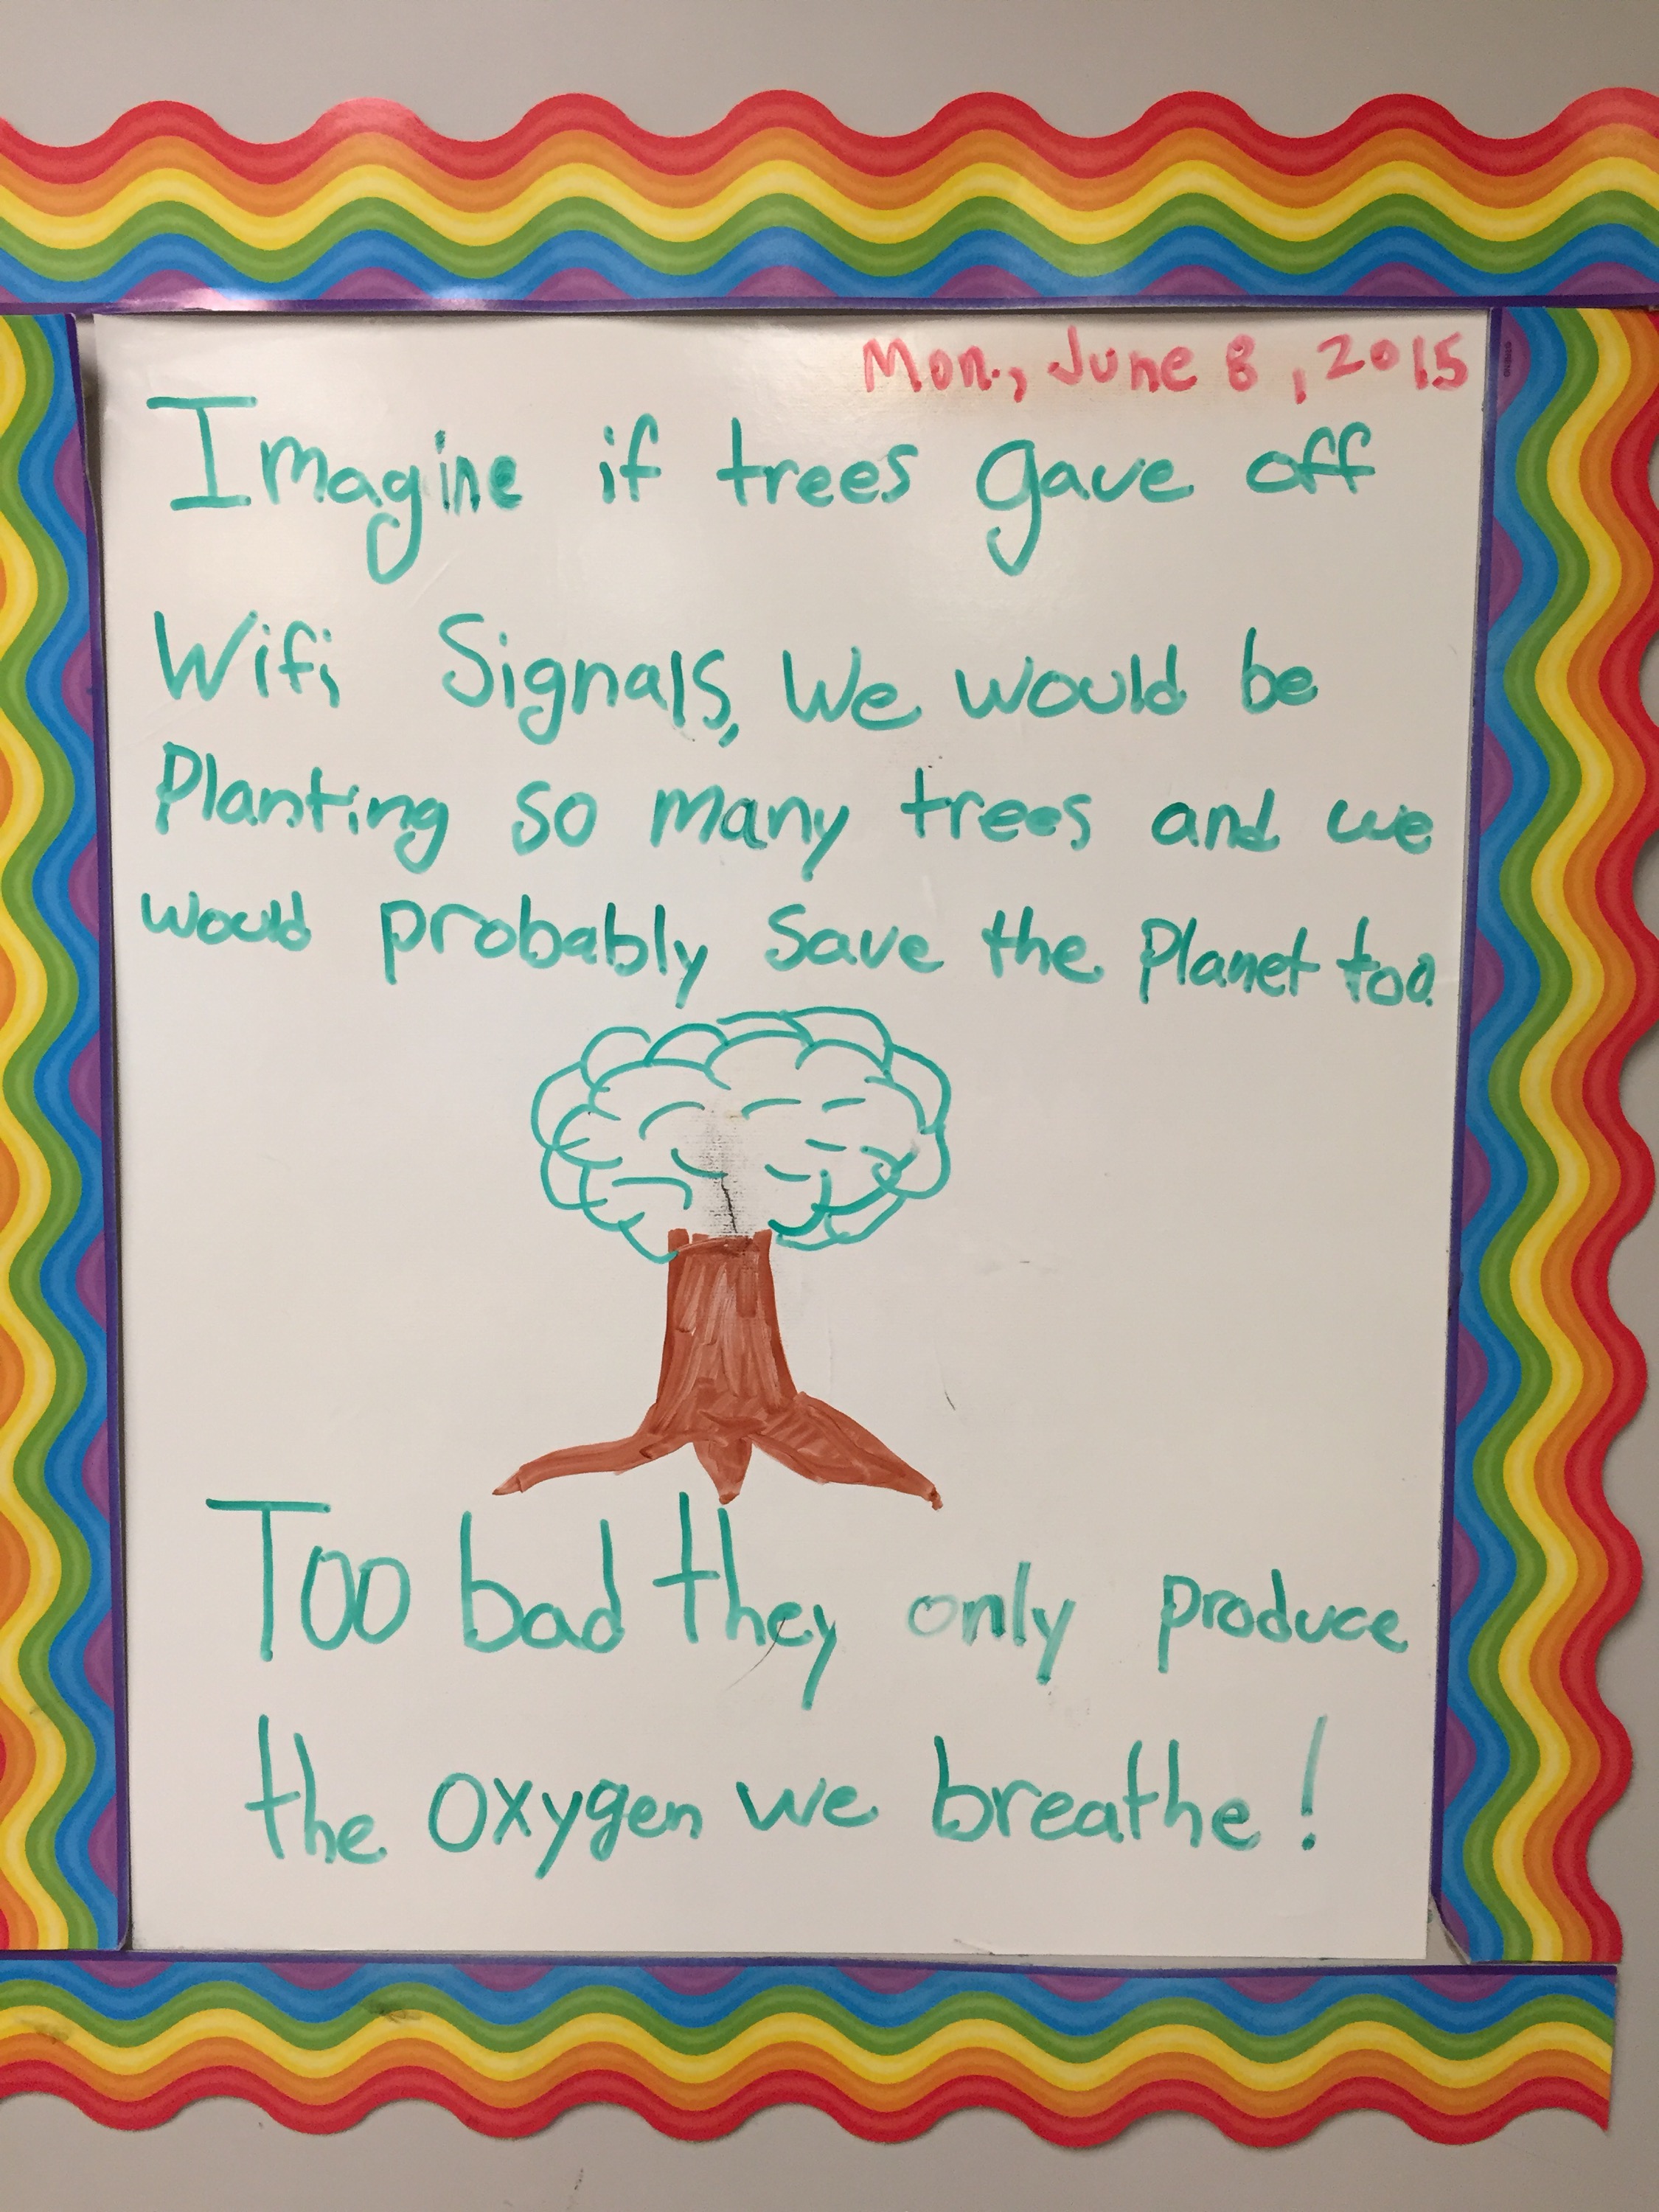 Mon., June 8, 2015
Imagine if trees gave off
Wifi Signals, We would be
Planting so many trees and we
would probably Save the Planet too.
Too bad they only produce
the oxygen we breathe!